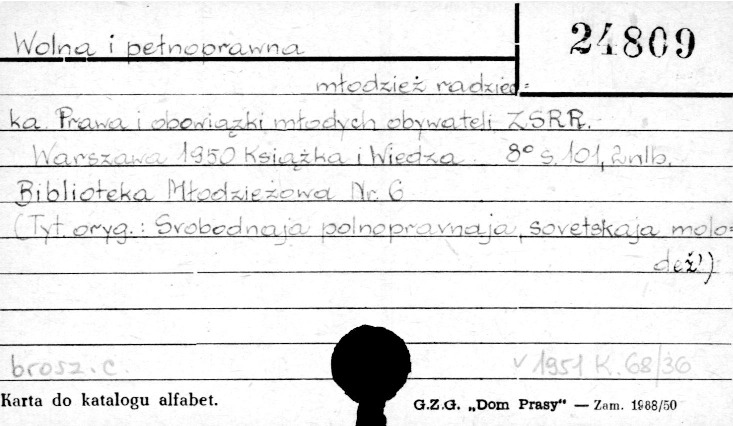 Wolna i pełnoprawna
24809
młodzież radziec=
ka. Prawa i obowiązki młodych obywateli ZSRR.
Warszawa 1950 Książka i Wiedza 8° s. 101, 2nlb.
Biblioteka Młodzieżowa Nr. 6
(Tyt. oryg.: Svobodnaja polnopravnaja, sovetskaja molo=
dež')
brosz. c.
v 1951 K. 68/36
Karta do katalogu alfabet.
G.Z.G. „Dom Prasy" — Zam. 1988/50